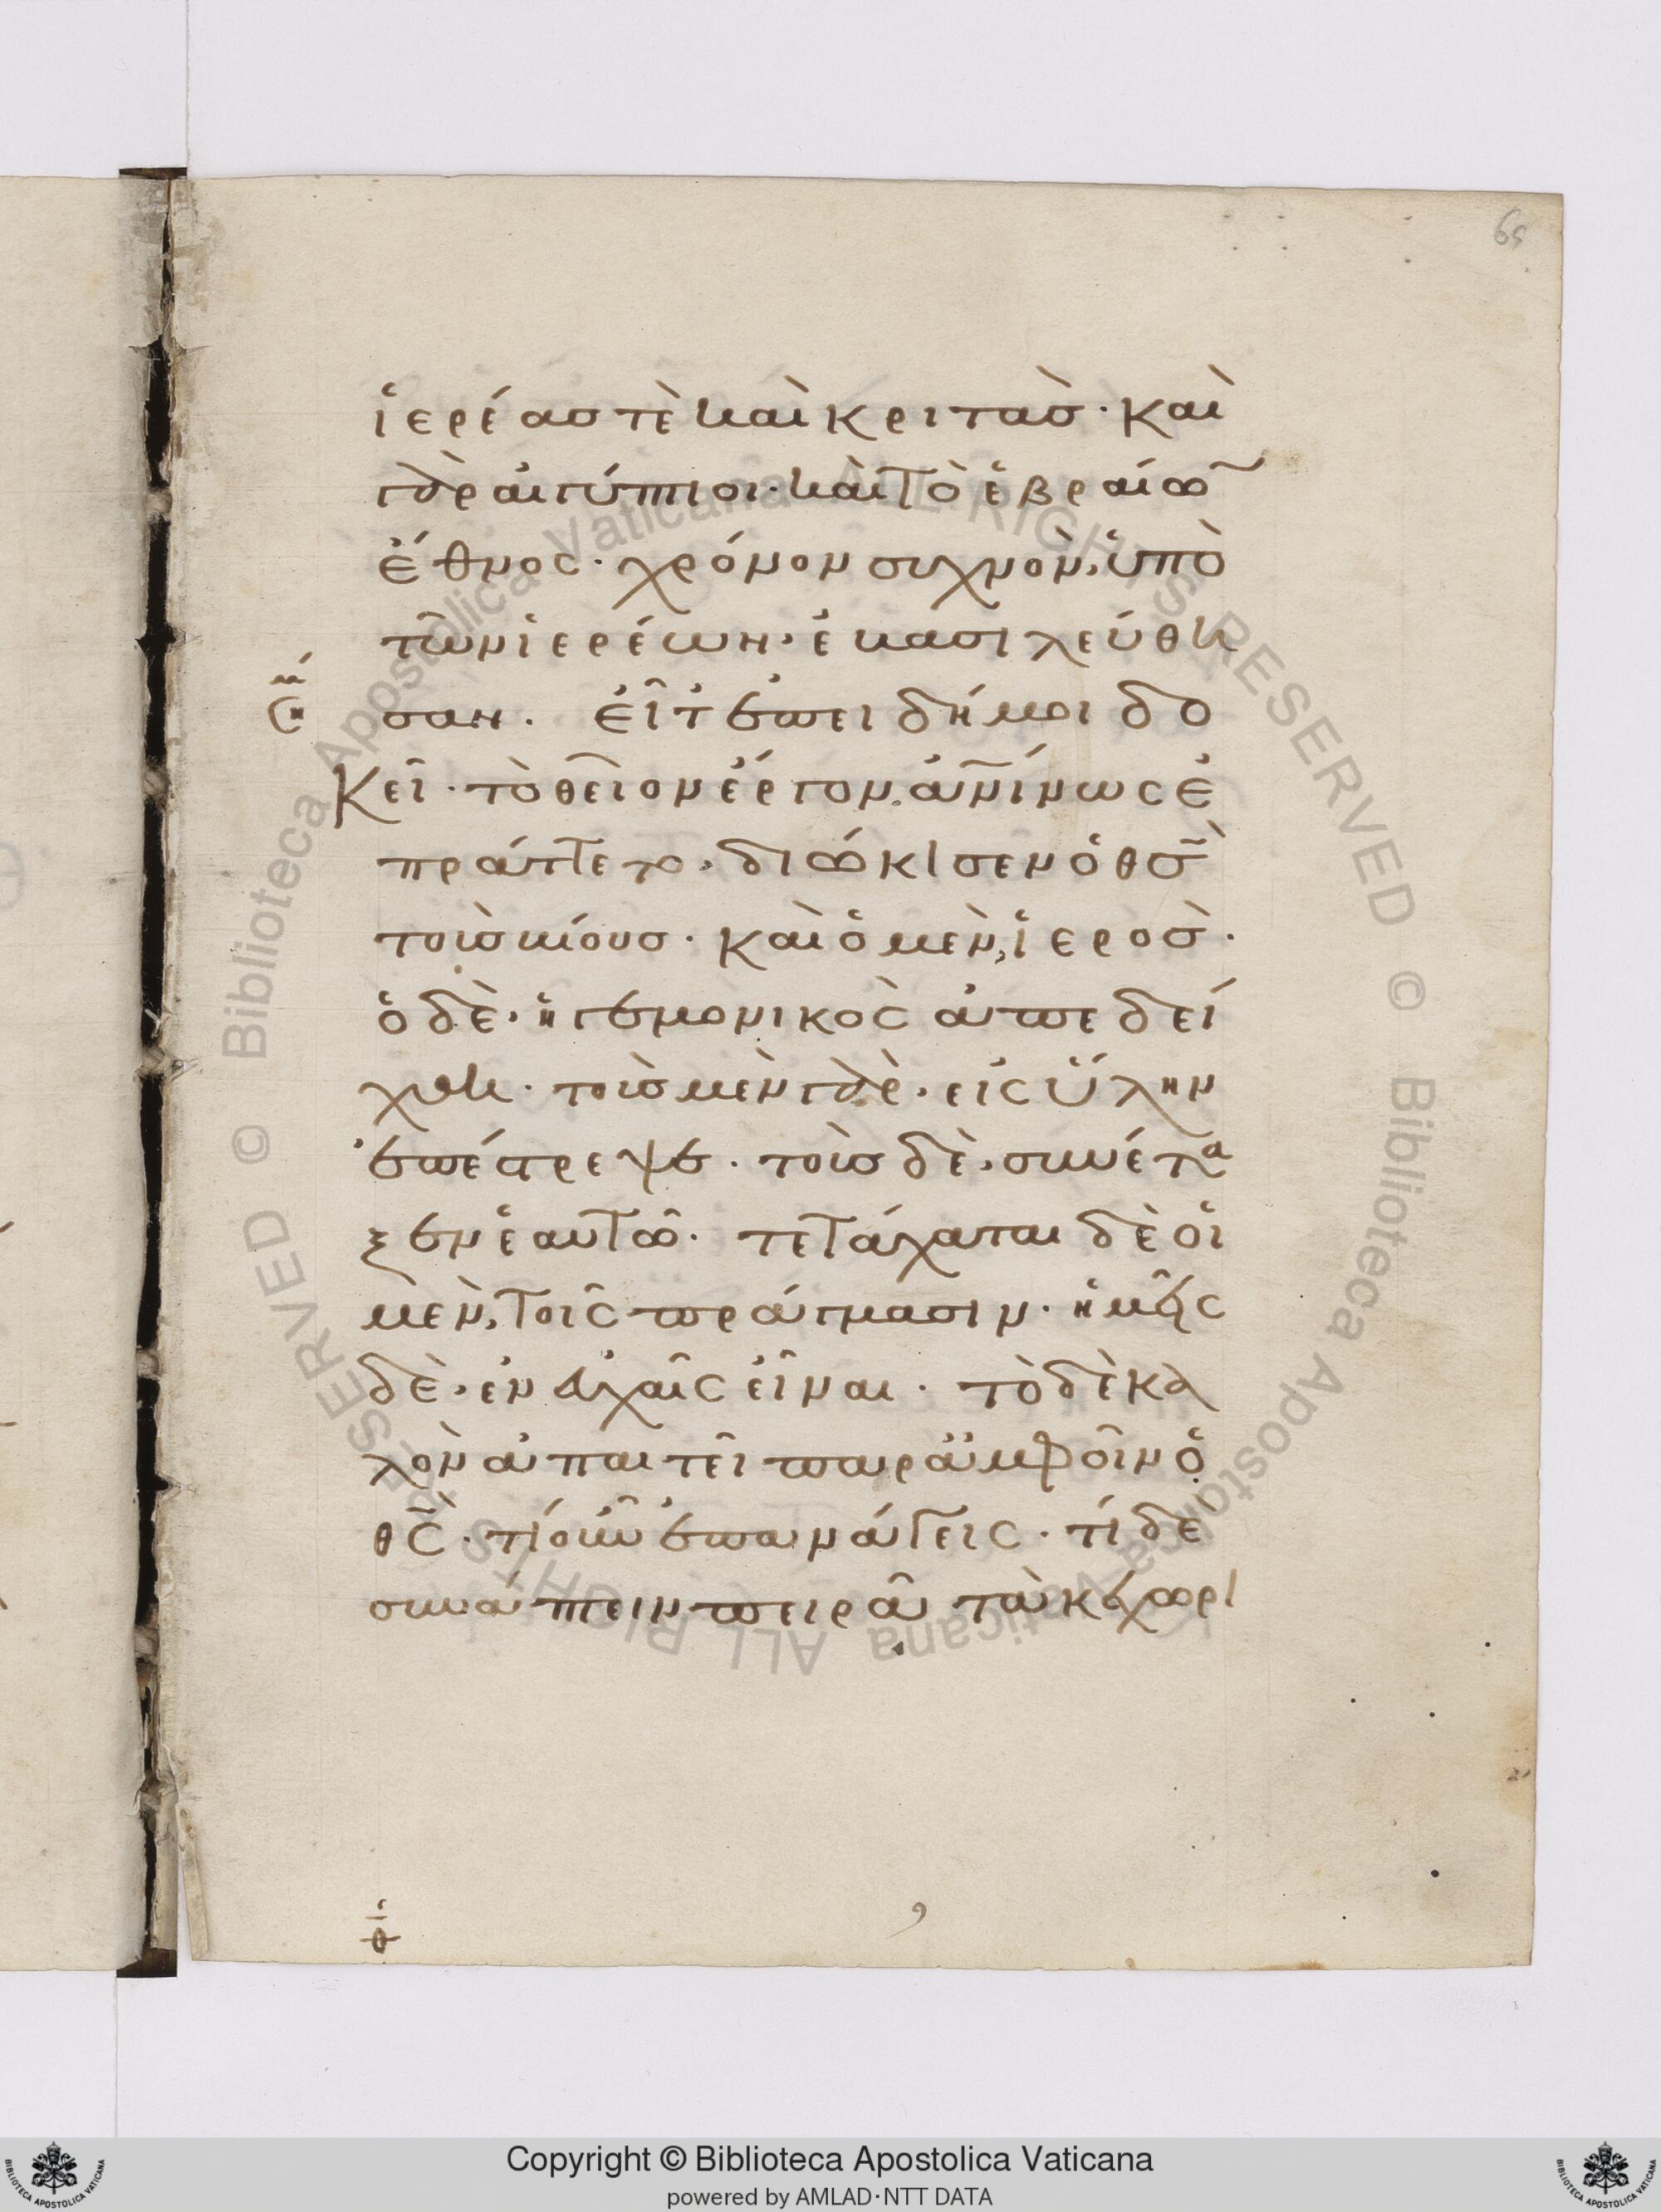 65
ἱερέασ τὲ καὶ κριτὰσ· καὶ
γὰρ αἰγύπτιοι· καὶ τὸ ἑβραίω̃
ἔθνος· χρόνον συχνὸν, ὑπὸ
τῶν ἱερέων· ἐβασιλεύθη
σαν. εἶτ ἐπειδή μοι δο
κεῖ· τὸ θεῖον ἔργον, ἀν̃ίνως ἐ
πράττετο, διώκισεν ὁ θσ̃
τοὺσ βίουσ· καὶ ὁ μὲν, ἱεροσ̀·
ὁ δὲ, ἡγεμονικὸς ἀπεδεί
χθη· τοὺσ μὲν γὰρ, εἰς ὕλην
ἐπέστρεψε· τοὺσ δὲ, συνέτα
ξεν ἑαυτῶ· τετάχαται δὲ οἱ
μὲν, τοῖς πράγμασιν· ἡμεῖς
δὲ, ἐν εὐχαῖς εἶναι· τὸ δὲ κα
λὸν ἀπαιτεῖ παρ ἀμφοῖν ὁ
θς̃· τί οὖν ἐπανάγεις· τί δὲ
συνάπτειν πειρᾶ τὰ κεχωρι
Copyright © Biblioteca Apostolica Vaticana
powered by AMLAD·NTT DATA